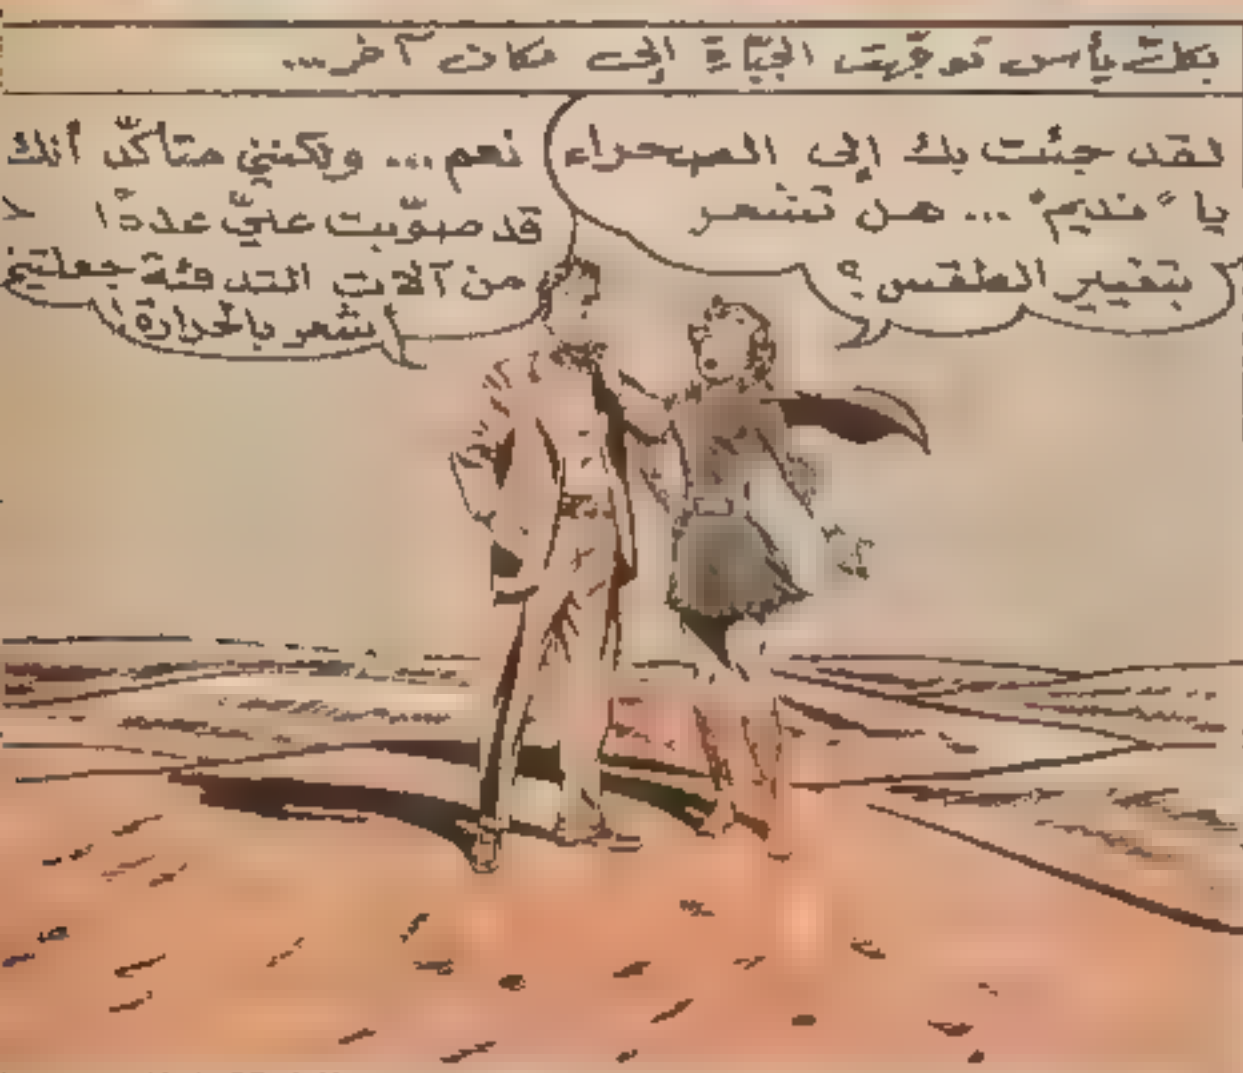 بكلّ يأس توجّهت الجنّية إلى مكان آخر...
لقد جئت بك إلى الصحراء
يا "نديم"... هل تشعر
بتغيير الطقس؟
نعم... ولكنني متأكّد أنك
قد صوّبت عليّ عددًا
من آلات التدفئة جعلتني
أشعر بالحرارة!